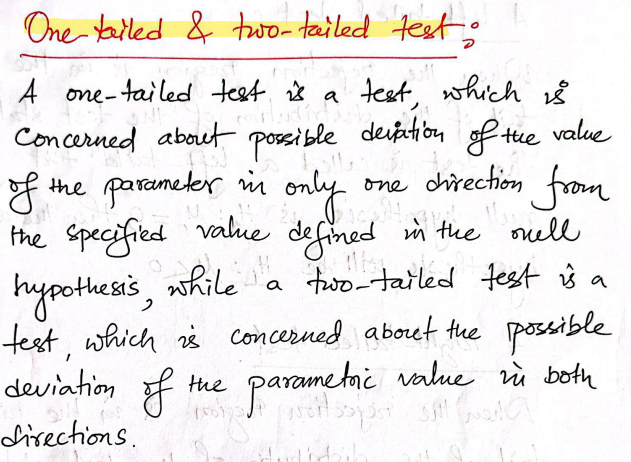 One-tailed & two-tailed test:
A one-tailed test is a test, which is
concerned about possible deviation of the value
of the parameter in only one direction from
the specified value defined in the null
hypothesis, while a two-tailed test is a
test, which is concerned about the possible
deviation of the parametric value in both
directions.